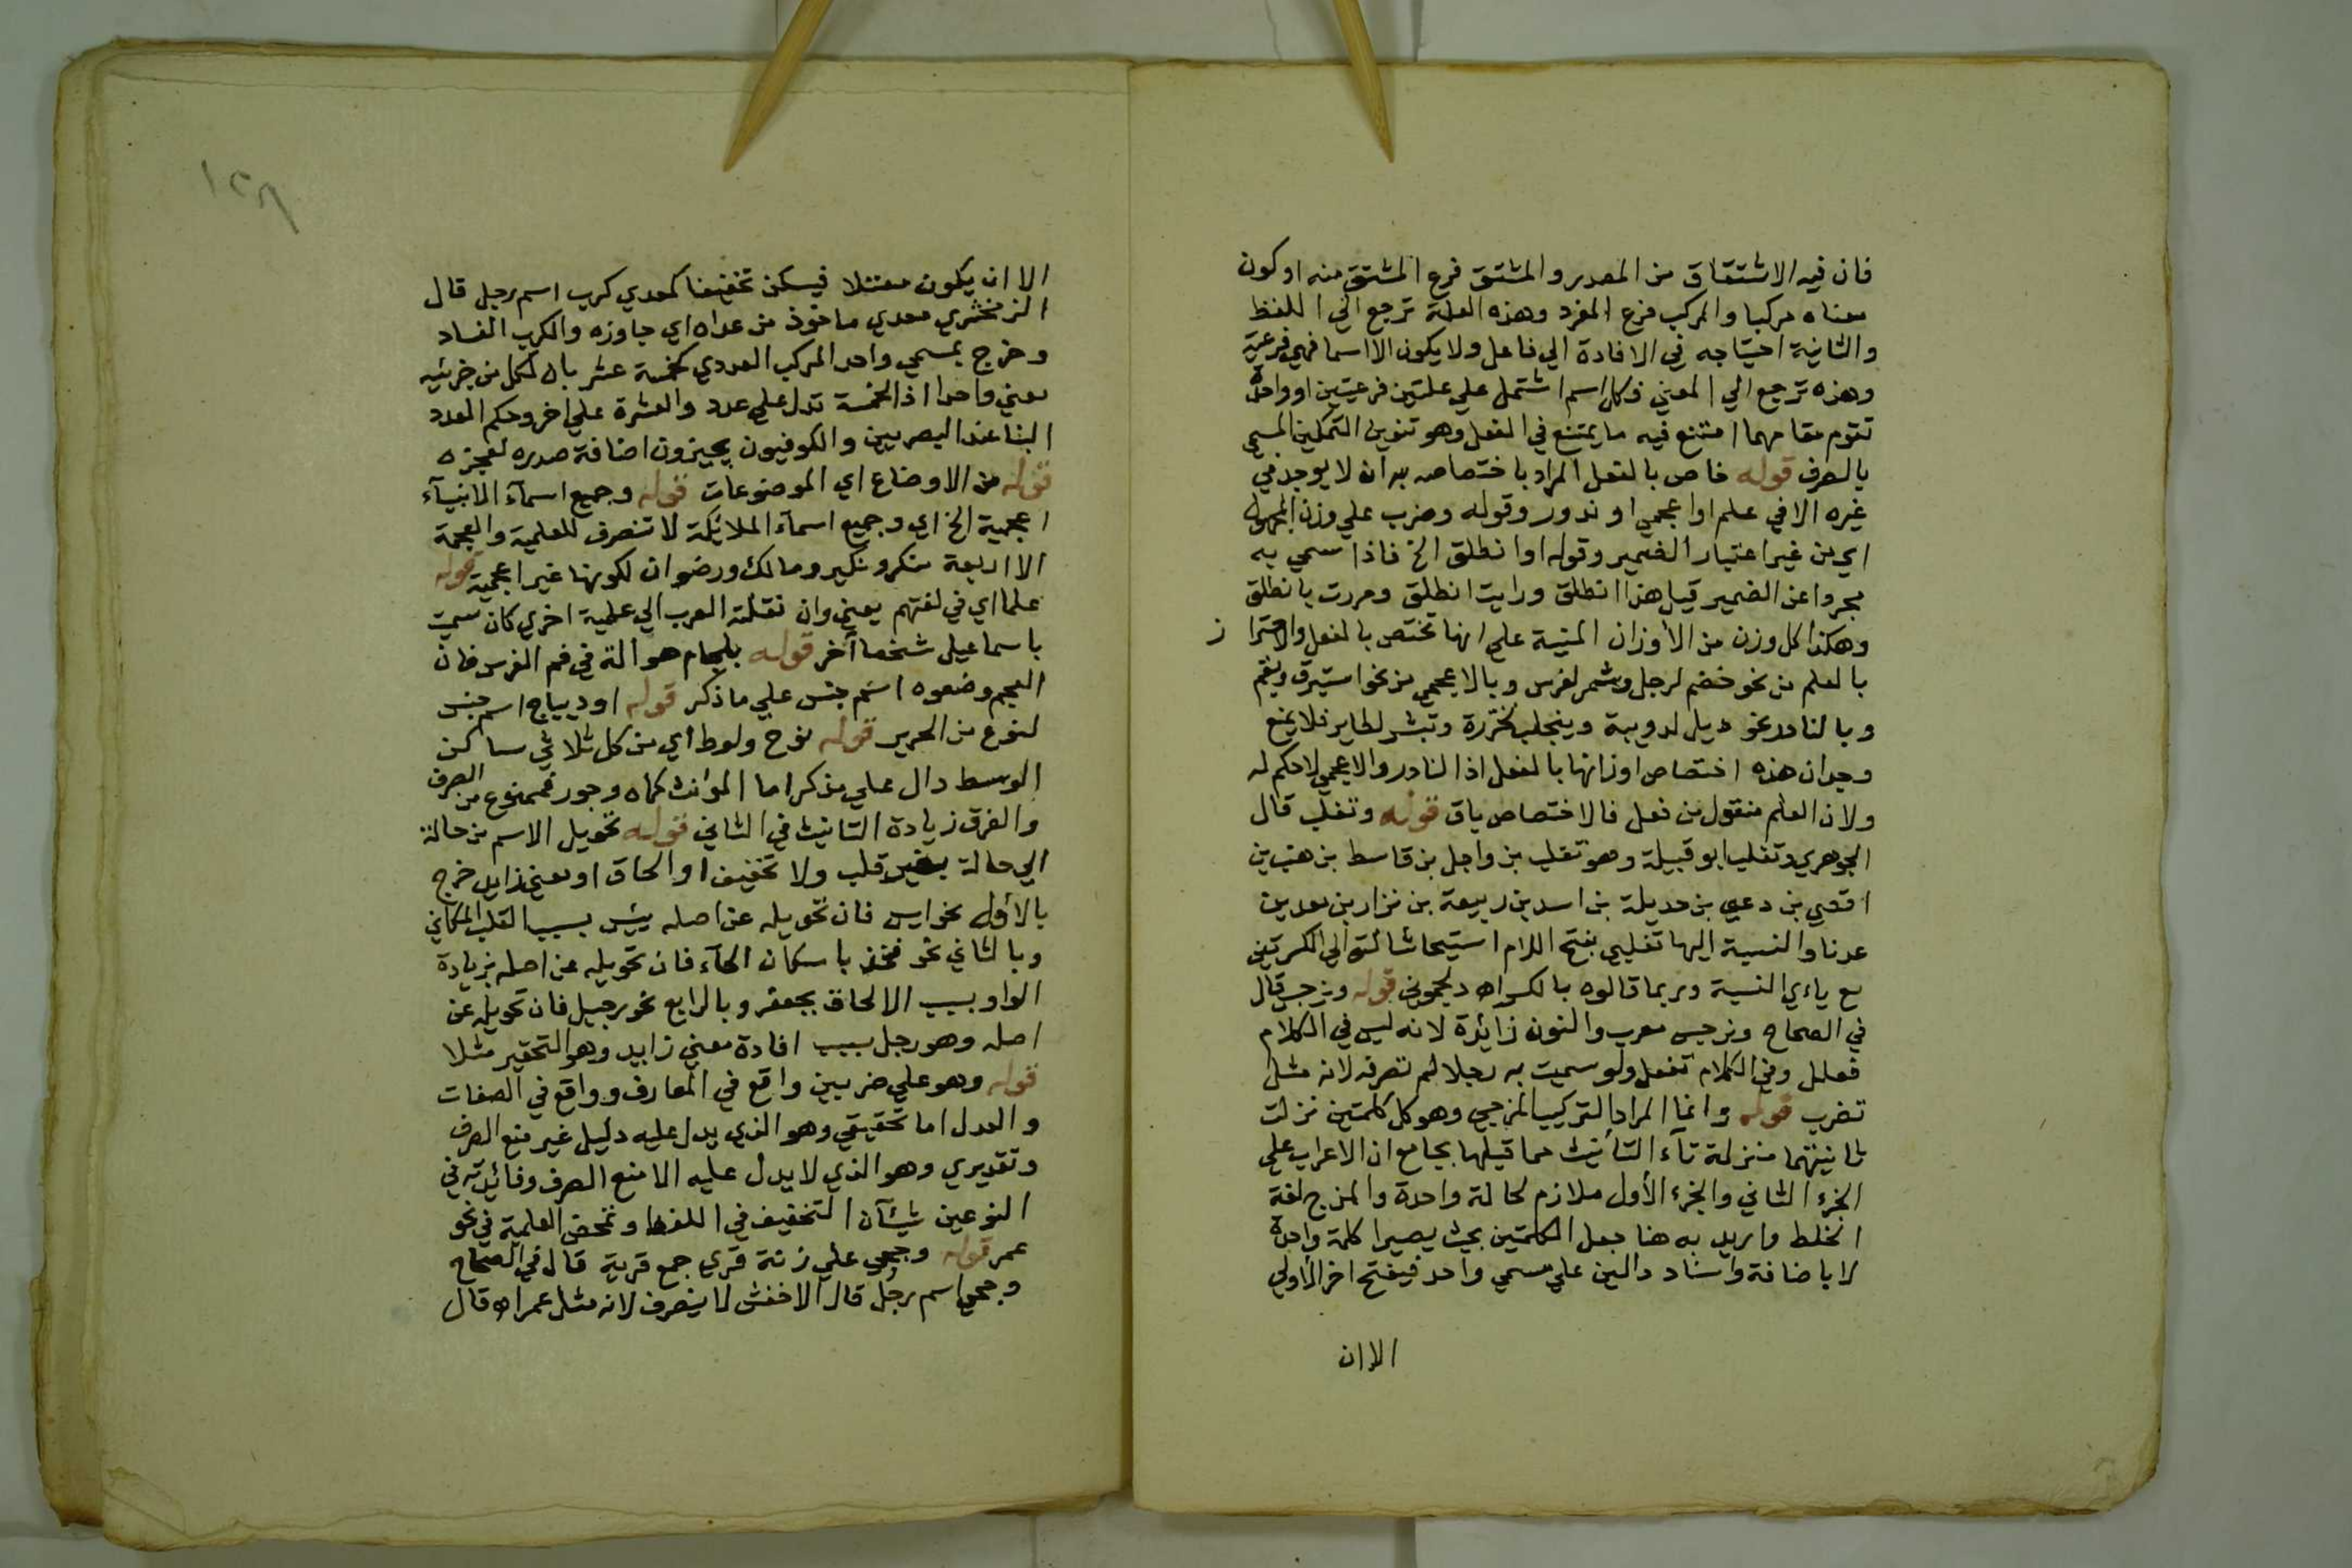 فان فيه الاشتقاق من المصدر والمشتق فرع المشتق منه او كون
معناه مركبا والمركب فرع المفرد وهذه العلة ترجع الي اللفظ
والثانية احتياجه في الافادة الي فاعل ولا يكون الا اسما فهي فرعية
وهذه ترجع الي المعني فكل اسم اشتمل علي علتين فرعيتين او واحدة
تقوم مقامهما امتنع فيه ما يمتنع في الفعل وهو تنوين التمكين المسمي
بالصرف قوله خاص بالفعل المراد باختصاصه به ان لا يوجد في
غيره الا في علم او اعجمي او ندور وقوله وضرب علي وزن المجهول
اي من غير اعتبار الضمير وقوله او انطلق الخ فاذا سمي به
مجردا عن الضمير قيل هذا انطلق ورايت انطلق ومررت بانطلق
وهكذا كل وزن من الأوزان المبنية علي انها تختص بالفعل والاحترا ز
بالعلم من نحو خضم لرجل وشمر لفرس وبالاعجمي من نحو استبرق وبقم
وبالنادر نحو دئل لدويبة وينجلب لخرزة وتبشر لطاير فلا يمنع
وجدان هذه اختصاص اوزانها بالفعل اذ النادر والاعجمي لا حكم له
ولان العلم منقول من فعل فالاختصاص باق قوله وتغلب قال
الجوهري وتغلب ابو قبيلة وهو تغلب بن وايل بن قاسط بن هنب بن
اقصي بن دعمي بن جديلة بن اسد بن ربيعة بن نزار بن معد بن
عدنا والنسبة اليها تغلبي بفتح اللام استيحاشا لتوالي الكسرتين
مع ياءي النسبة وربما قالوه بالكسر اه دلجموني قوله ونرجس قال
في الصحاح ونرجس معرب والنون زائدة لانه ليس في الكلام
فعلل وفي الكلام تفعل ولو سميت به رجلا لم تصرفه لانه مثل
تضرب قوله وانما المراد التركيب المزجي وهو كل كلمتين نزلت
ثانيتهما منزلة تآء التأنيث مما قبلها بجامع ان الاعراب علي
الجزء الثاني والجزء الأول ملازم لحالة واحدة والمزج لغة
الخلط واريد به هنا جعل الكلمتين بحيث يصيرا كلمة واحدة
لا باضافة واسناد دالين علي مسمي واحد فيفتح اخر الأولي
الا ان
١٢٨
الا ان يكون معتلا فيسكن تخفيفا كمعدي كرب اسم رجل قال
الزمخشري معدي ماخوذ من عداه اي جاوزه والكرب الفساد
وخرج بمسمي واحد المركب العددي كخمسة عشر بان لكل من جزئيه
معني واحدا اذ الخمسة تدل علي عدد والعشرة علي اخر وحكم العدد
البنا عند البصريين والكوفيون يجيزون اضافة صدره لعجزه
قوله من الاوضاع اي الموضوعات قوله وجميع اسمآء الانبيآء
اعجمية الخ اي وجميع اسمآء الملائكة لا تنصرف للعلمية والعجمة
الا اربعة منكر ونكير ومالك ورضوان لكونها غير اعجمية قوله
علما اي في لغتهم يعني وان نقلته العرب الي علمية اخري كان سميت
باسماعيل شخصا آخر قوله بلجام هو آلة في فم الفرس فان
العجم وضعوه اسم جنس علي ما ذكر قوله او ديباج اسم جنس
لنوع من الحرير قوله نوح ولوط اي من كل ثلاثي ساكن
الوسط دال علي مذكر اما المؤنث كماه وجور فممنوع من الصرف
والفرق زيادة التانيث في الثاني قوله تحويل الاسم من حالة
الي حالة بغير قلب ولا تخفيف او الحاق او معني زايد خرج
بالأول نحو ايس فان تحويله عن اصله يئس بسبب القلب المكاني
وبالثاني نحو فخذ باسكان الخآء فان تحويله عن اصله بزيادة
الواو بسبب الالحاق بجعفر وبالرابع نحو رجيل فان تحويله عن
اصله وهو رجل بسبب افادة معني زايد وهو التحقير مثلا
قوله وهو علي ضربين واقع في المعارف وواقع في الصفات
والعدل اما تحقيقي وهو الذي يدل عليه دليل غير منع الصرف
وتقديري وهو الذي لا يدل عليه الا منع الصرف وفائدته في
النوعين شيئآن التخفيف في اللفظ وتمحض العلمية في نحو
عمر قوله وجمحي علي زنة قري جمع قرية قال في الصحاح
وجمحي اسم رجل قال الاخفش لا ينصرف لانه مثل عمر اه قال